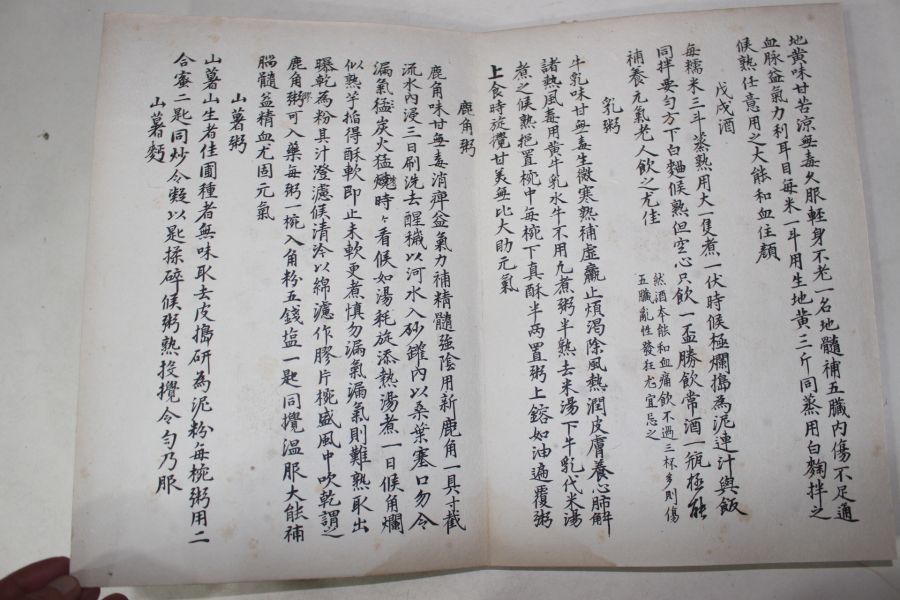 地黃味甘苦涼無毒久服輕身不老一名地髓補五臟內傷不足通
血脉益氣力利耳目每米一斗用生地黃三斤同蒸用白麴拌之
候熟任意用之大能和血住顏
戊戌酒
每糯米三斗蒸熟用犬一隻煮一伏時候極爛搗為泥連汁與飯
同拌要勻方下白麯候熟但空心只飲一盃勝飲常酒一瓶極能
補養元氣老人飲之尤佳
然酒本能和血痛飲不過三杯多則傷
五臟亂性發狂尤宜忌之
乳粥
牛乳味甘無毒生微寒熟補虛羸止煩渴除風熱潤皮膚養心肺解
諸熱風毒用黃牛乳水牛不用凡煮粥半熟去米湯下牛乳代米湯
煮之候熟挹置椀中每椀下真酥半兩置粥上鎔如油遍覆粥
上食時旋攪甘美無比大助元氣
鹿角粥
鹿角味甘無毒消痺益氣力補精髓強陰用新鹿角一具寸截
流水內浸三日刷洗去腥穢以河水入砂鑵內以桑葉塞口勿令
漏氣猛炭火猛燒時〻看候如湯耗旋添熱湯煮一日候角爛
似熟芋掐得酥軟即止未軟更煮慎勿漏氣漏氣則難熟取出
曝乾為粉其汁澄濾候清冷以綿濾作膠片椀盛風中吹乾謂之
鹿角膠粥可入藥每粥一椀入角粉五錢塩一匙同攪溫服大能補
腦髓益精血尤固元氣
山薯粥
山薯山生者佳圃種者無味取去皮搗研為泥粉每椀粥用二
合蜜二匙同炒令凝以匙揉碎候粥熟投攪令勻乃服
山薯麪